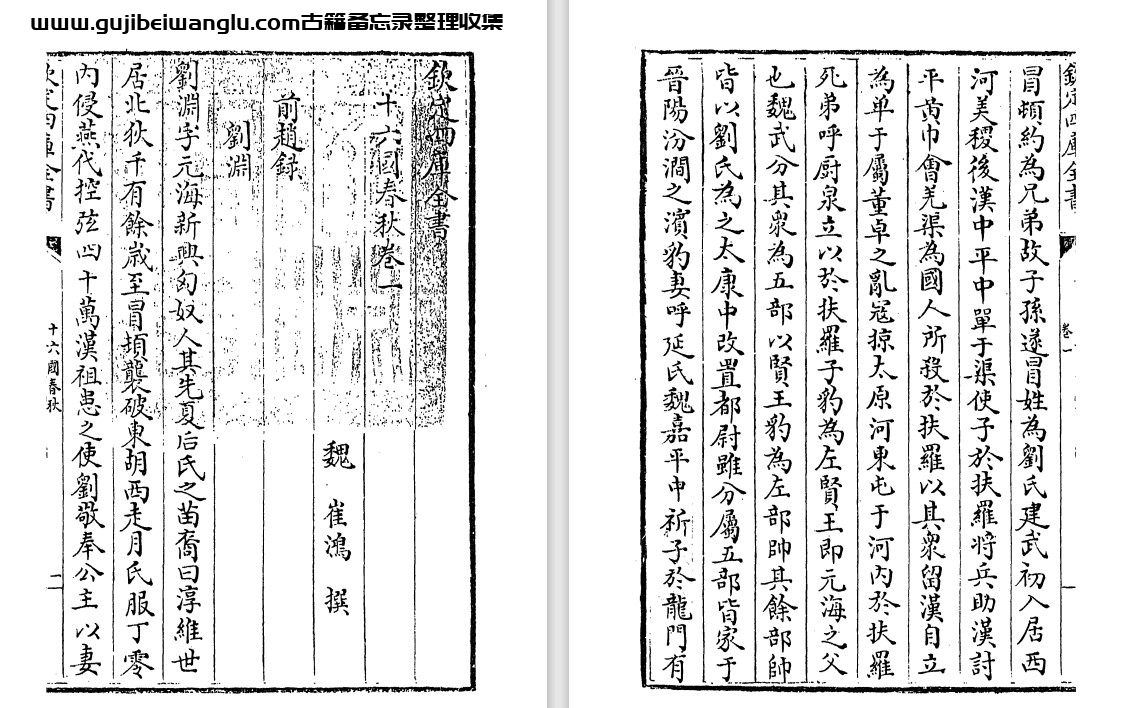 www.gujibeiwanglu.com古籍备忘录整理收集
欽定四庫全書
十六國春秋卷一
魏 崔鴻 撰
前趙録
劉淵
劉淵字元海新興匈奴人其先夏后氏之苗裔曰淳維世
居北狄千有餘歲至冒頓襲破東胡西走月氏服丁零
內侵燕代控弦四十萬漢祖患之使劉敬奉公主以妻
欽定四庫全書
十六國春秋
二
欽定四庫全書
卷一
冒頓約為兄弟故子孫遂冒姓為劉氏建武初入居西
河美稷後漢中平中單于渠使子於扶羅將兵助漢討
平黄巾會羌渠為國人所殺於扶羅以其衆留漢自立
為单于屬董卓之亂寇掠太原河東屯于河內於扶羅
死弟呼厨泉立以於扶羅子豹為左賢王即元海之父
也魏武分其衆為五部以賢王豹為左部帥其餘部帥
皆以劉氏為之太康中改置都尉雖分屬五部皆家于
晉陽汾澗之濱豹妻呼延氏魏嘉平中祈子於龍門有